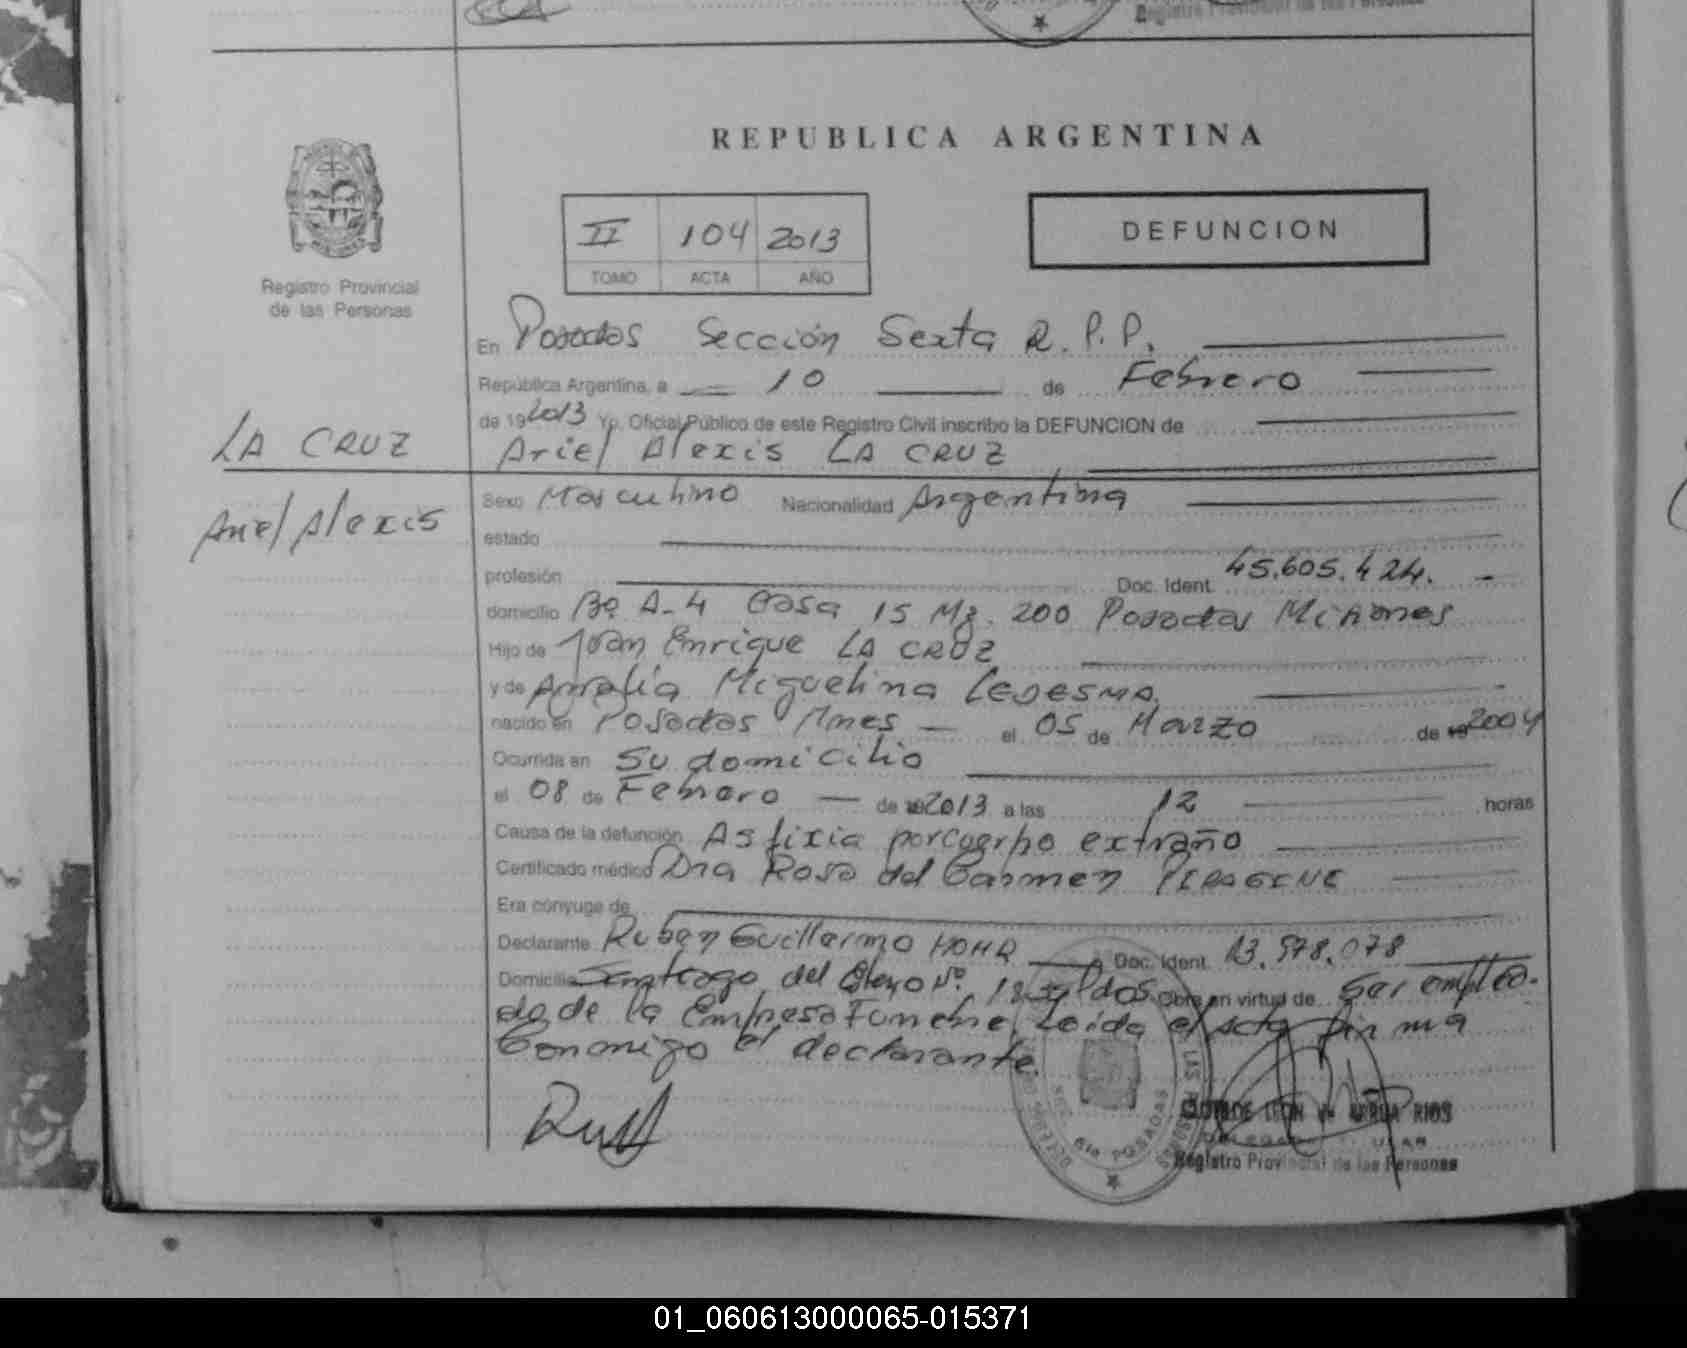 Registro Provincial de las Personas
REPUBLICA ARGENTINA
II 104 2013
TOMO ACTA AÑO
DEFUNCION
Registro Provincial
de las Personas
En Posadas Sección Sexta R.P.P.
República Argentina, a 10 de Febrero
de 192013 Yo, Oficial Público de este Registro Civil inscribo la DEFUNCION de
LA CRUZ
Ariel Alexis LA CRUZ
Ariel Alexis
Sexo Masculino Nacionalidad Argentina
estado
profesión Doc. Ident. 45.605.424.
domicilio Bº A-4 Casa 15 Mz. 200 Posadas Misiones
Hijo de Juan Enrique LA CRUZ
y de Amalia Miguelina LEDESMA
nacido en Posadas Mnes el 05 de Marzo de 19 2004
Ocurrida en Su domicilio
el 08 de Febrero de 19 2013 a las 12 horas
Causa de la defunción Asfixia por cuerpo extraño
Certificado médico Dra Rosa del Carmen PIRAGINE
Era cónyuge de
Declarante Ruben Guillermo Doc. Ident. 13.978.078
Domicilio Santiago del Estero Nº Pdos Obra en virtud de Ser emplea-
do de la Empresa Funebre. Leida el acta firma
Conmigo el declarante.
6ta POSADAS
RIOS
Registro Provincial de las Personas
01_060613000065-015371